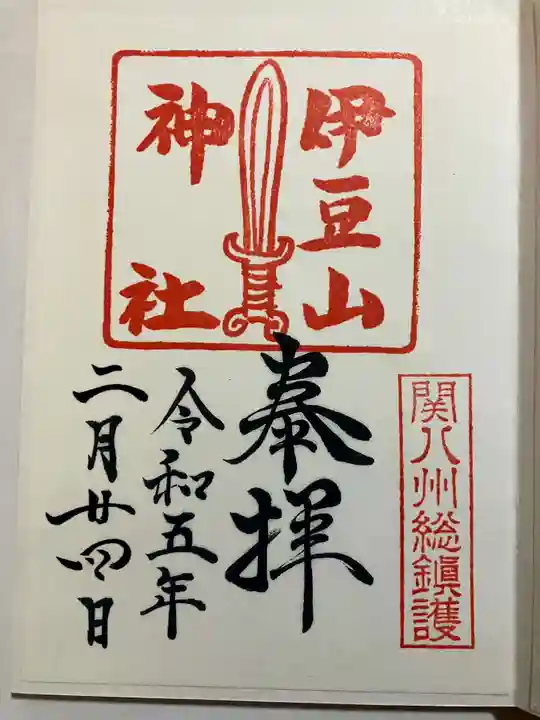 伊豆山
神社
関八州総鎮護
奉拝
令和五年
二月廿四日